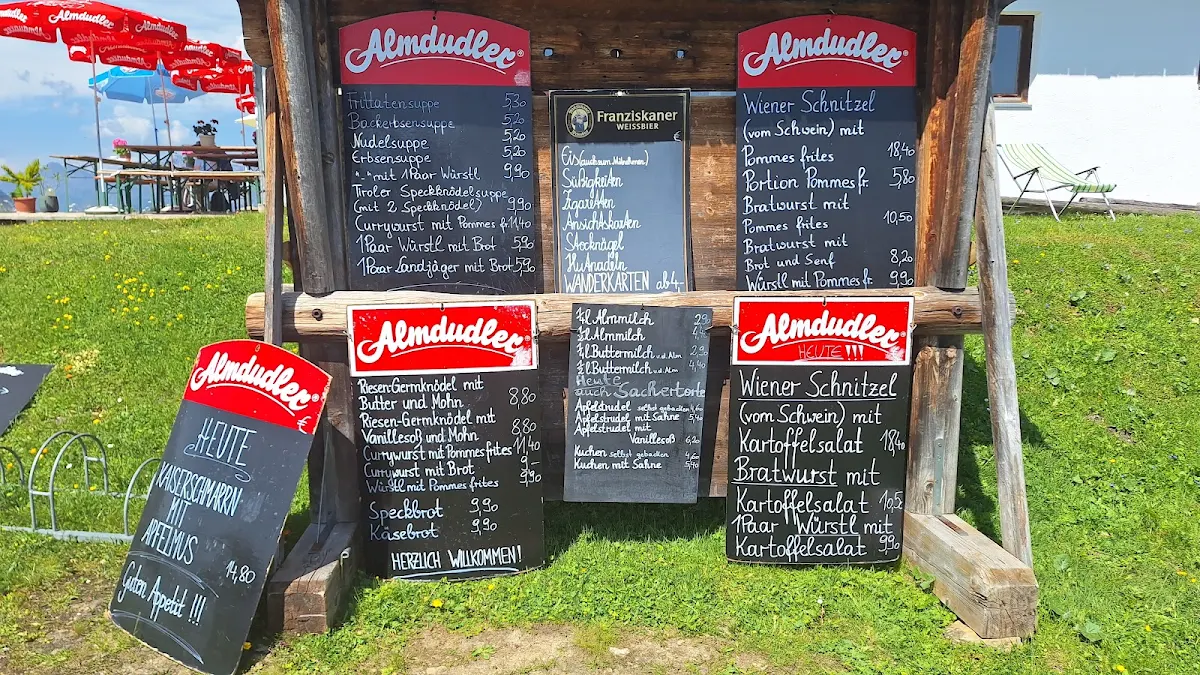 Almdudler
Almdudler
Almdudler
Almdudler
Almdudler
Frittatensuppe 5,30
Backerbsensuppe 5,20
Nudelsuppe 5,20
Erbsensuppe 5,20
-"- mit 1 Paar Würstl 9,90
Tiroler Speckknödelsuppe
(mit 2 Speckknödel) 9,90
Currywurst mit Pommes fr. 11,40
1Paar Würstl mit Brot 5,90
1Paar Landjäger mit Brot 5,90
Franziskaner
WEISSBIER
Süßigkeiten
Zigaretten
Ansichtskarten
Stocknägel
Hutnadeln
WANDERKARTEN ab 4,-
Almdudler
Wiener Schnitzel
(vom Schwein) mit
Pommes frites 18,40
Portion Pommes fr. 5,80
Bratwurst mit
Pommes frites 10,50
Bratwurst mit
Brot und Senf 8,20
Würstl mit Pommes fr. 9,90
Almdudler
HEUTE
KAISERSCHMARRN
MIT
APFELMUS
14,80
Guten Appetit !!!
Almdudler
Riesen-Germknödel mit
Butter und Mohn 8,80
Riesen-Germknödel mit
Vanillesoß und Mohn 8,80
Currywurst mit Pommes frites 11,40
Currywurst mit Brot 9,-
Würstl mit Pommes frites 9,90
Speckbrot 9,90
Käsebrot 9,90
HERZLICH WILLKOMMEN!
¼l Almmilch 2,90
½l Almmilch 4,40
¼l Buttermilch v.d. Alm 2,90
½l Buttermilch v.d. Alm 4,40
Heute
auch Sachertorte
Apfelstrudel selbst gebacken 4,60
Apfelstrudel mit Sahne 5,40
Apfelstrudel mit
Vanillesoß 6,20
Kuchen selbst gebacken 4,60
Kuchen mit Sahne 5,40
Almdudler
HEUTE !!!
Wiener Schnitzel
(vom Schwein) mit
Kartoffelsalat 18,40
Bratwurst mit
Kartoffelsalat 10,5
1Paar Würstl mit
Kartoffelsalat 9,90